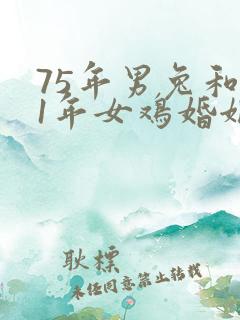 75年男兔和
1年女鸡婚
耿标
未经同意禁止转载